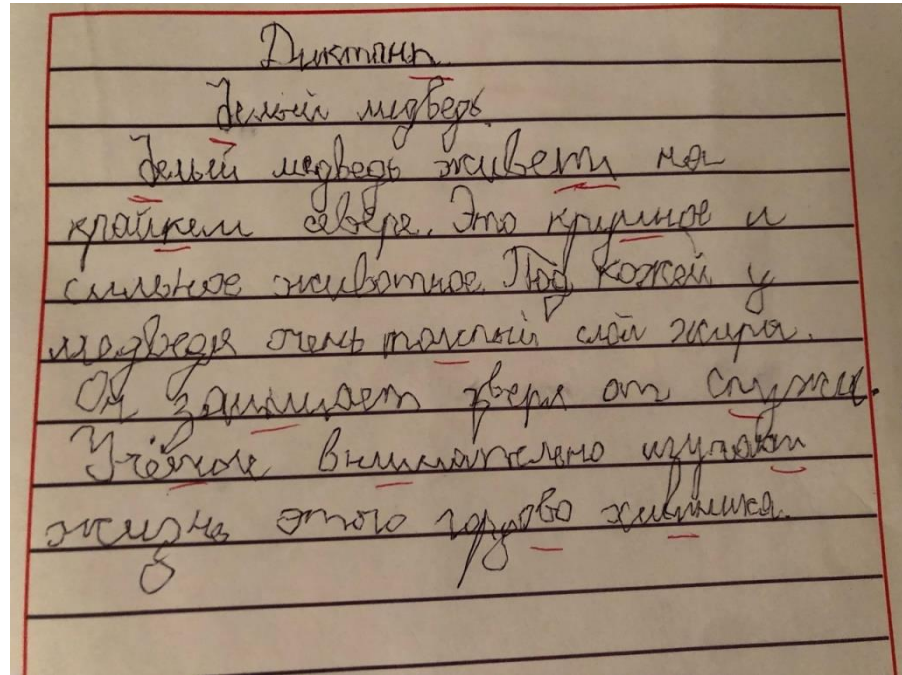 Диктань
Делый медведь.
Делый медведь живети на
крайкем севере. Это крумное и
сильное животное. Под кожей у
медведя очень толспый слой жира.
Он защищает зверя от спужи.
Учёные внимательно изучают
жизнь этого гордово хивтника.